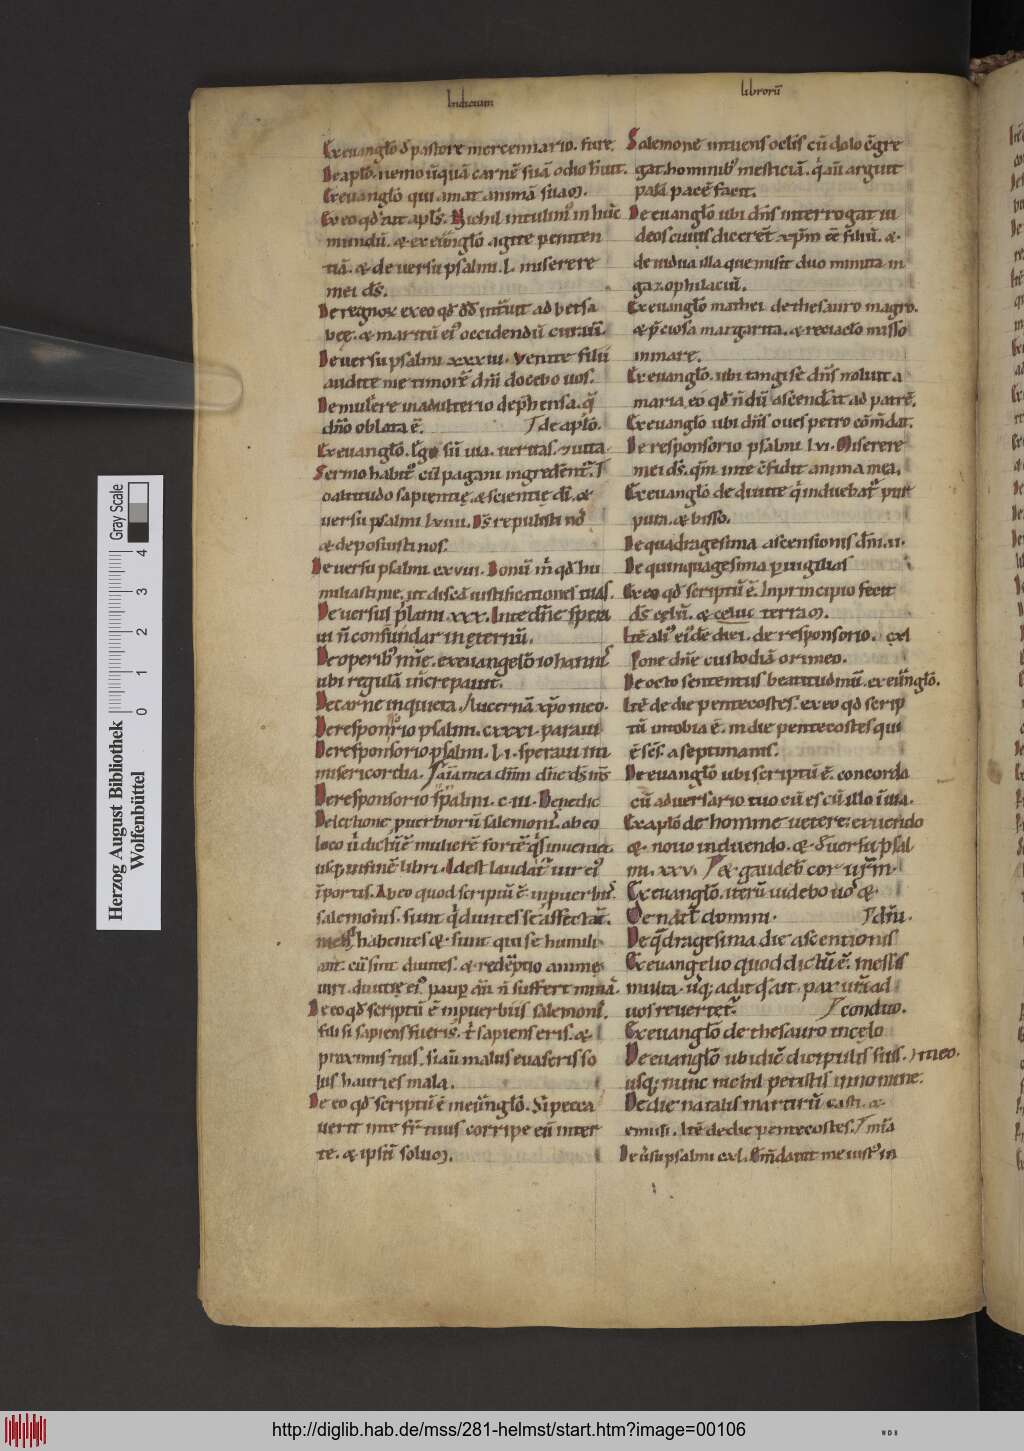 Indicium
librorū
Ex euangl̄o d̄ pastore mercennario. fure.
De ap̄lo. nemo ūquā carnē suā odio h̄uit.
Ex euangl̄o qui amat animā suam.
Ex eo qd̄ ait apl̄s. Nichil intulim᷒ in hūc
mundū. & ex euāngl̄o agite peniten
tiā. & de uersu psalmi. l. miserere
mei d̄s.
De regnoꝝ ex eo qd̄ d̄d intrauit ad betsa
bęę. & maritū ei᷒ occidendū curauit.
De uersu psalmi xxxiii. venite filii
audite me timorē dn̄i docebo uos.
De muliere in adulterio dep̄hensa. q̄
dn̄o oblata ē. de ap̄lo.
Ex euangl̄o. Ego sū uia. ueritas. & uita.
Sermo habit᷒ cū pagani ingredent᷒.
o altitudo sapientię. & scientię dī. &
uersu psalmi lviiii. D̄s repulisti nō
& deposuisti nos.
De uersu psalmi cxviii. Bonū m̄ qd̄ hu
miliasti me. ut discā iustificationes tuas.
De uersu psalmi xxx. In te dn̄e spera
ui n̄ confundar in ęternū.
De operib᷒ mīe. ex euangelio iohannis
ubi regulā increpauit.
De carne inquieta. Lucernā xp̄o meo.
De responsorio psalmi. cxxxi. paraui
De responsorio psalmi. l. i. speraui in
misericordia. aīa mea dn̄m dn̄e d̄s n̄s
De responsorio psalmi. c. iii. Benedic
De lectione puerbiorū salemonis. ab eo
loco ū dictū ē mulierē fortē q̄s inueniet
usq; in finē libri. Id est laudat᷒ uir ei᷒
ī portis. Ab eo quod scriptū ē in puerbiis
salemonis. sunt q̄ diuites se affectāt.
habentes &. sunt qui se humili
ant. cū sint diuites. & redēptio animę
uiri. diuitię ei᷒. paup̄ aū n̄ suffert minā.
De eo qd̄ scriptū ē in puerbiis salemonis.
fili si sapiens fueris. t̄ sapiens eris. &
proximis tuis. si aū malus euaseris so
lus hauries mala.
De eo qd̄ scriptū ē in euāngl̄o. Si pecca
uerit in te fr̄ tuus corripe eū inter
te. & ipsū solum.
Salemonē intuens oclis cū dolo c̄gre
gat hominib᷒ mesticiā. q̄ aū arguit
palā pacē facit.
De euangl̄o ubi dn̄s interrogat iu
deos cuius dicerēt xp̄m ēē filiū. &.
de uidua illa que misit duo minuta in
gazophilaciū.
Ex euangl̄o mathei de thesauro magro.
& p̄ciosa margarita. & reciaclo misso
in mare.
Ex euangl̄o. ubi tangi se dn̄s noluit a
maria. eo qd̄ n̄dū ascendat ad patrē.
Ex euangl̄o ubi dn̄s oues petro cōmdat.
De responsorio psalmi lvi. Miserere
mei d̄s. qm̄ in te c̄fidit anima mea.
Ex euangl̄o de diuite q̄ induebat᷒ pur
pura. & bisso.
De quadragesima ascensionis dn̄i. ii.
De quinquagesima p̄ uigilias
Ex eo qd̄ scriptū ē. In principio fecit
d̄s cęlū. & terram.
Itē ali᷒ ei᷒dē diei. de responsorio. cxl
Pone dn̄e custodiā ori meo.
De octo sententiis beatitudinū. ex euāngl̄o.
Itē de die pentecostes. ex eo qd̄ scrip
tū in tobia ē. in die pentecostes qui
ē sēs. a septimanis.
De euangl̄o ubi scriptū ē. concorda
cū aduersario tuo cū es cū illo ī uia.
Ex ap̄lo de homine uetere exuendo
&. nouo induendo. &. d̄ uersu psal
mi. xxv. & gaudeb̄ cor ur̄m.
Ex euangl̄o. iterū uidebo uos &.
De natl̄ domini. dn̄i.
De q̄dragesima die ascentionis
Ex euangelio quod dictū ē. messis
multa.
uos reuertet᷒. conduo.
Ex euangl̄o de thesauro in cęlo
De euangl̄o ubi dic̄ discipulis suis.
usq; nunc nichil petistis in nomine. meo.
De die natalis martirū casti. &
emili. Itē de die pentecostes.
De ūsu psalmi cxl. Em̄dabit me iust᷒ in
Herzog August Bibliothek
Wolfenbüttel
Gray Scale
0 1 2 3 4
http://diglib.hab.de/mss/281-helmst/start.htm?image=00106
WDB